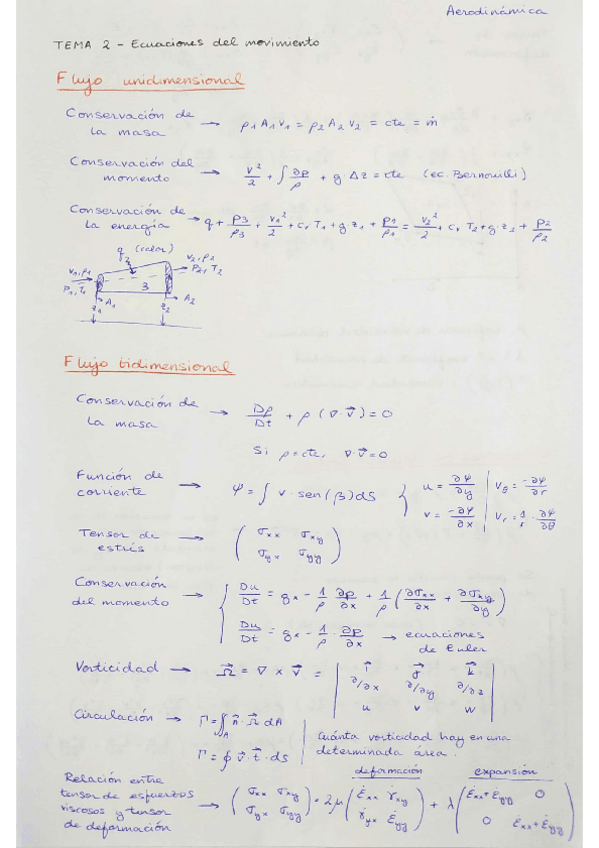 Aerodinámica
TEMA 2 - Ecuaciones del movimiento
Flujo unidimensional
Conservación de la masa → ρ1 A1 v1 = ρ2 A2 v2 = cte = ṁ
Conservación del momento → v²/2 + ∫ ∂p/ρ + g Δz = cte (ec. Bernouilli)
Conservación de la energía → q + p3/ρ3 + v1²/2 + cv T1 + g·z1 + p1/ρ1 = v2²/2 + cv T2 + g·z2 + p2/ρ2
q (calor)
v1, ρ1
P1, T1
v2, ρ2
P2, T2
3
A1
A2
z1
z2
Flujo bidimensional
Conservación de la masa → Dρ/Dt + ρ (∇·v⃗) = 0
Si ρ = cte, ∇·v⃗ = 0
Función de corriente → Ψ = ∫ v · sen(β) dS { u = ∂Ψ/∂y | vθ = -∂Ψ/∂r
v = -∂Ψ/∂x | vr = 1/r · ∂Ψ/∂θ
Tensor de estrés → ( σxx σxy
σyx σyy )
Conservación del momento → { Du/Dt = gx - 1/ρ ∂p/∂x + 1/ρ (∂σxx/∂x + ∂σxy/∂y)
Du/Dt = gx - 1/ρ · ∂p/∂x → ecuaciones de Euler
Vorticidad → Ω⃗ = ∇ × v⃗ = | i⃗ j⃗ k⃗
∂/∂x ∂/∂y ∂/∂z
u v w |
Circulación → Γ = ∬A n⃗ · Ω⃗ dA
Γ = ∮ v⃗ · t⃗ · dS
Cuánta vorticidad hay en una
determinada área.
deformación expansión
Relación entre
tensor de esfuerzos
viscosos y tensor
de deformación → ( σxx σxy
σyx σyy ) = 2μ ( ε̇xx γ̇xy
γ̇yx ε̇yy ) + λ ( ε̇xx + ε̇yy 0
0 ε̇xx + ε̇yy )